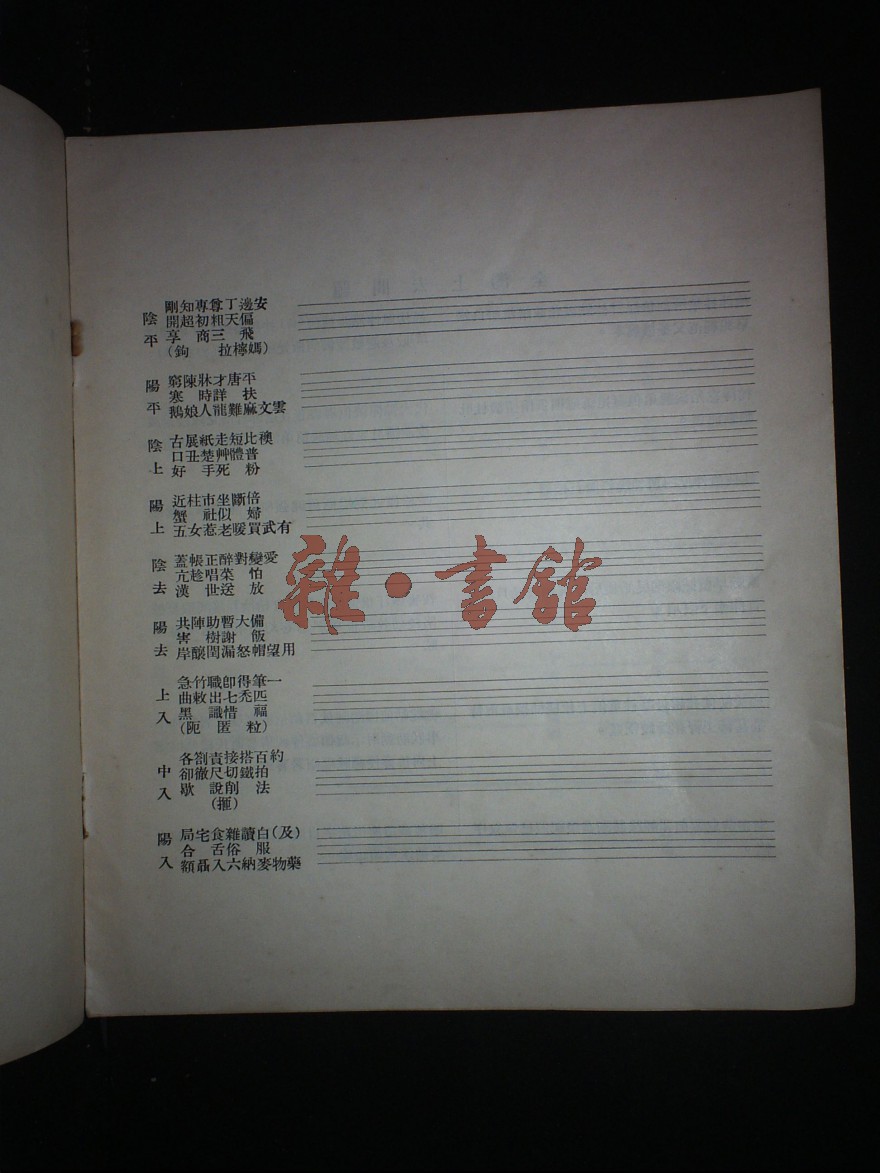 陰平
剛知專尊丁邊安
開超初粗天偏
享 商 三 飛
(鉤 拉檸媽)
陽平
窮陳牀才唐平
寒 時 詳 扶
鵝娘人龍難麻文雲
陰上
古展紙走短比襖
口丑楚艸體普
好 手 死 粉
陽上
近柱市坐斷倍
蟹 社似 婦
五女惹老暖買武有
陰去
蓋帳正醉對變愛
亢趁唱菜 怕
漢 世 送 放
陽去
共陣助暫大備
害 樹 謝 飯
岸釀閏漏怒帽望用
上入
急竹職卽得筆一
曲敕出七禿匹
黑 識 惜 福
(阨 匿 粒)
中入
各劄責接搭百約
卻徹尺切鐵拍
歇 說 削 法
(摑)
陽入
局宅食雜讀白(及)
合 舌 俗 服
額聶入六納麥物藥
雜·書館